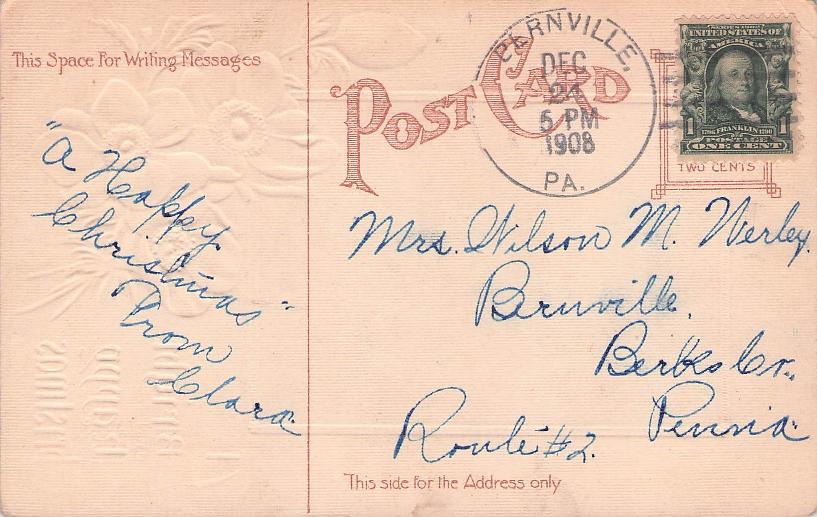 This Space For Writing Messages
POST CARD
BERNVILLE,
DEC
24
5 PM
1908
PA.
SERIES 1902
UNITED STATES OF
AMERICA
1 1
1706 FRANKLIN 1790
POSTAGE
ONE CENT
TWO CENTS
"A Happy
Christmas"
From
Clara.
Mrs. Wilson M. Werley.
Bernville.
Berks Co.,
Penna.
Route #2.
This side for the Address only